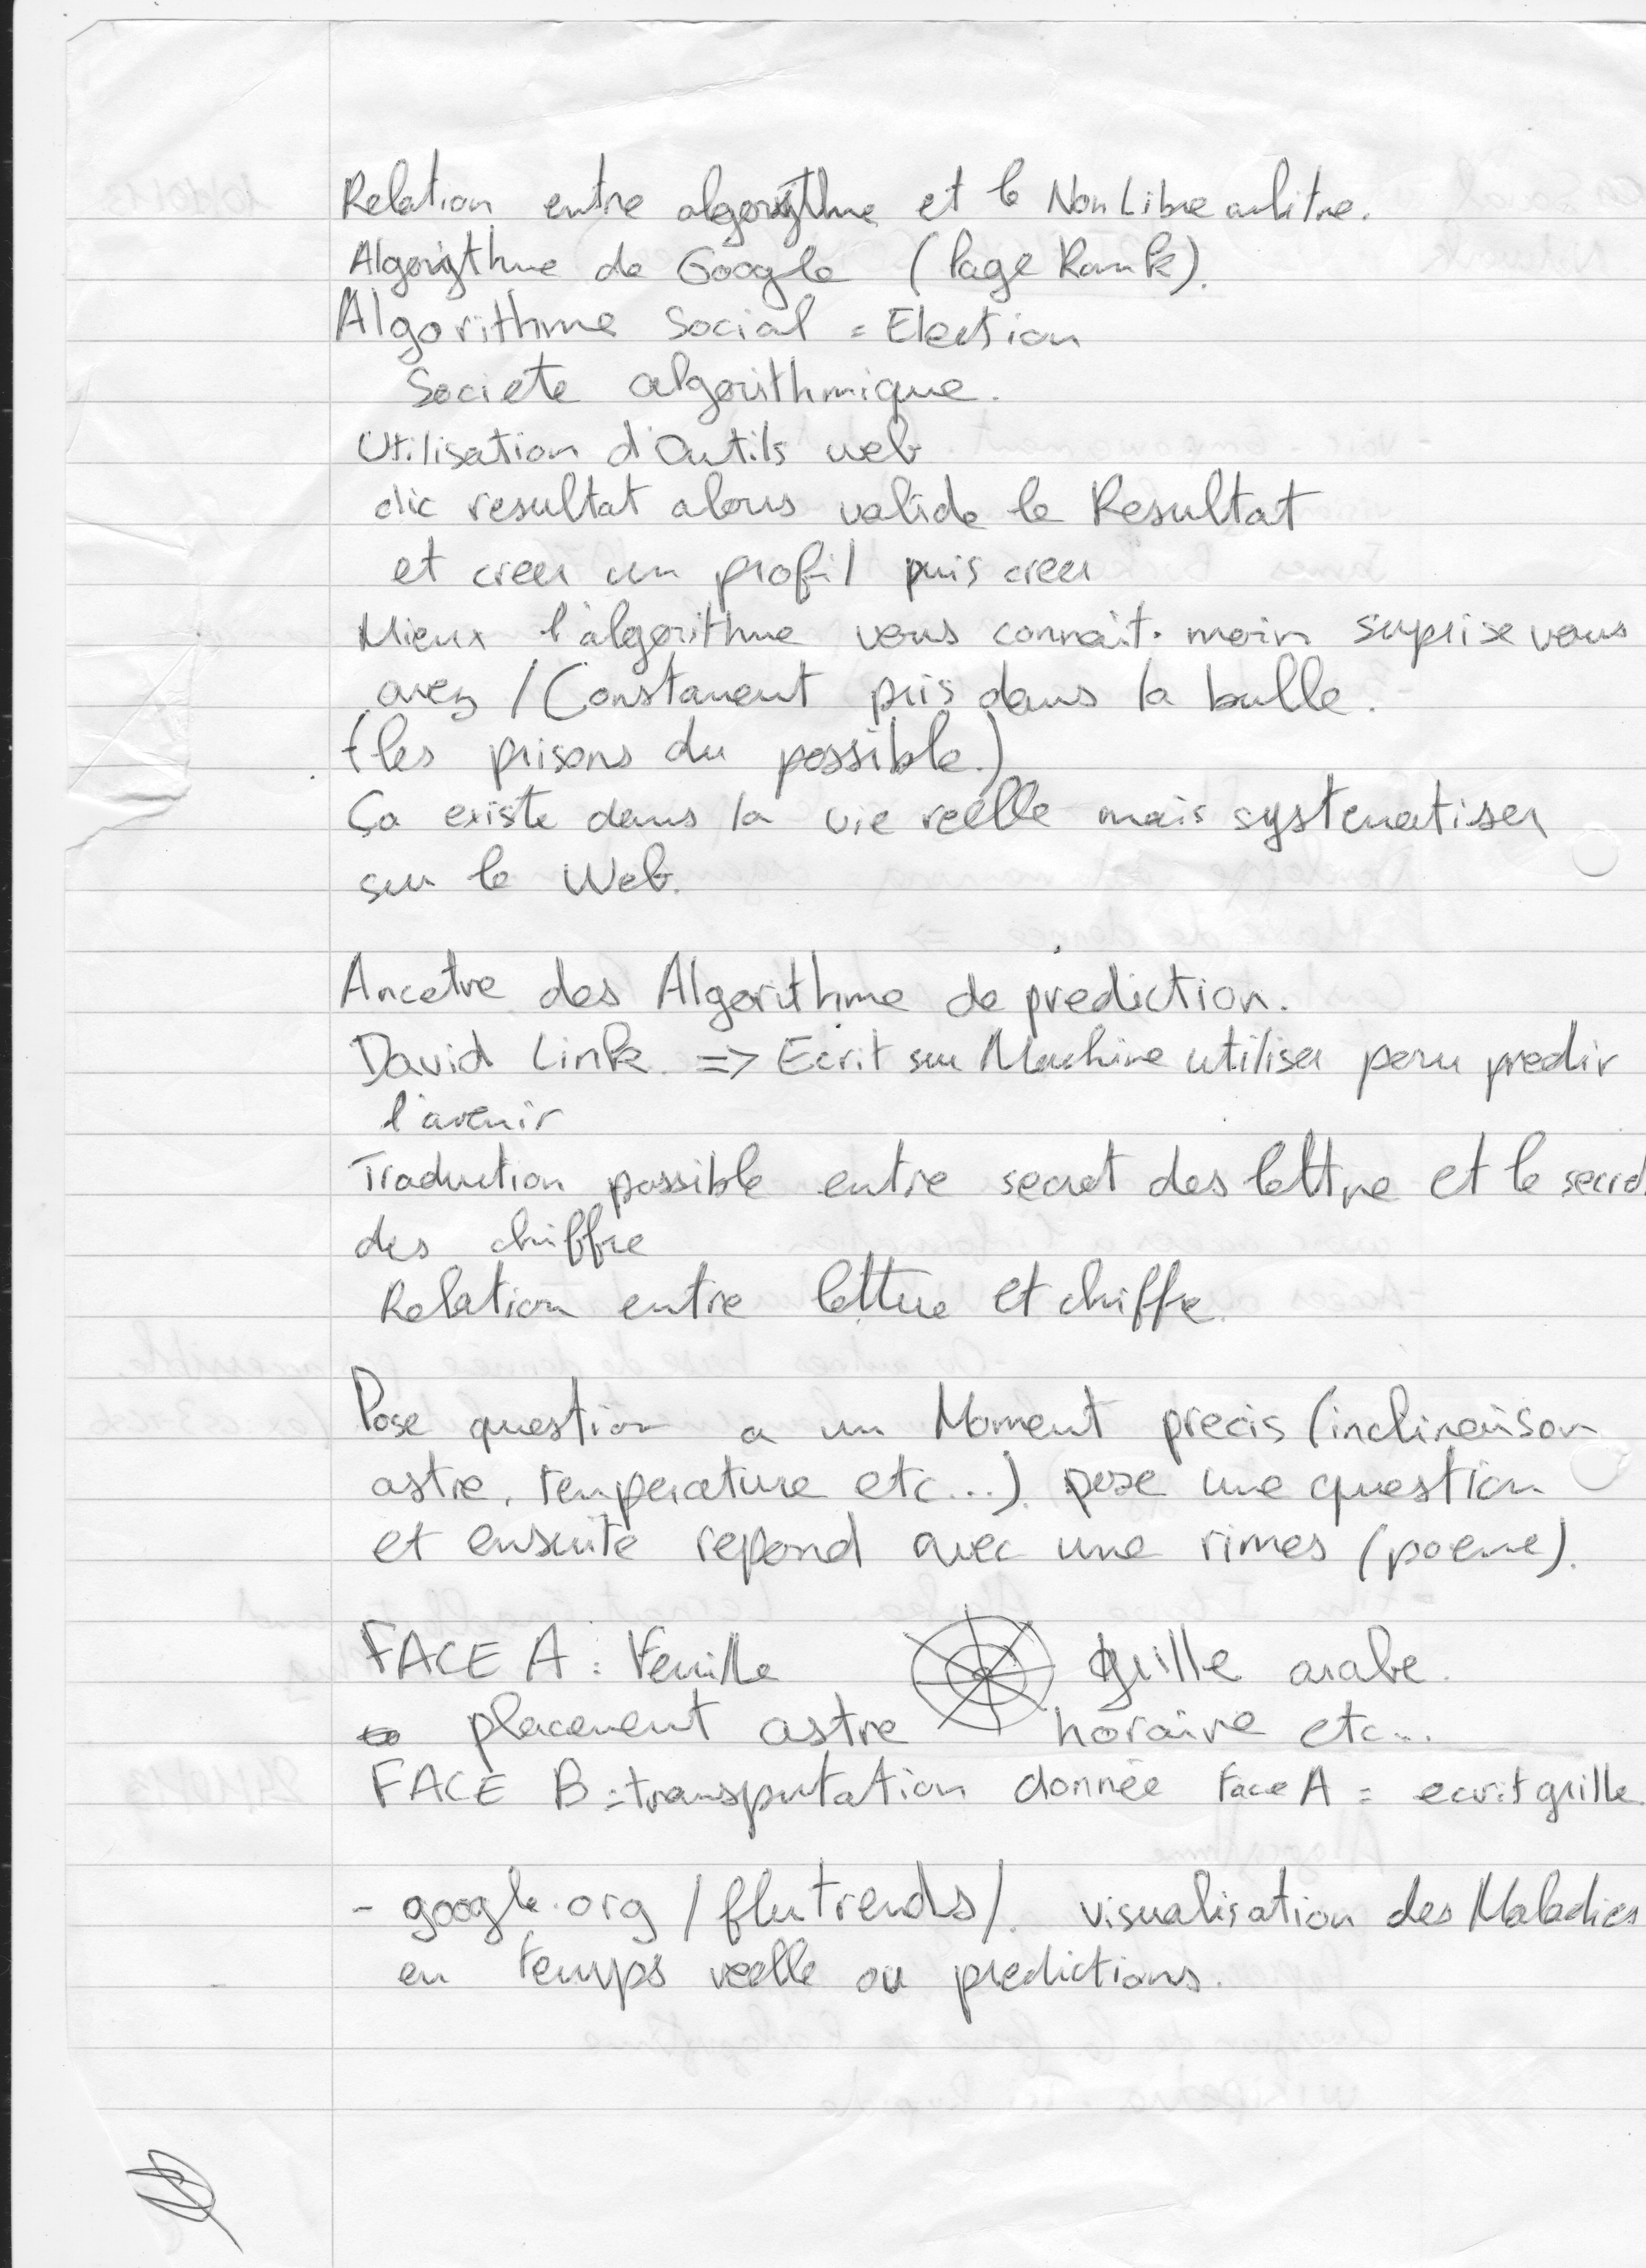 Relation entre algorythme et le Non Libre arbitre.
Algorigthme de Google (Page Rank).
Algorithme Social = Election
Societe algorithmique.
Utilisation d'Outils web
clic resultat alors valide le Resultat
et creer un profil puis creer
Mieux l'algorithme vous connait. moin suprise vous
avez / Constament pris dans la bulle.
(les prisons du possible.)
Ça existe dans la vie reelle mais systematiser
sur le Web.
Ancetre des Algorithme de prediction.
David Link => Ecrit sur Machine utiliser pour predir
l'avenir
Traduction possible entre secret des lettre et le secret
des chiffre
Relation entre lettre et chiffre.
Pose question a un Moment precis (inclinaison
astre, temperature etc...). pose une question
et ensuite repond avec une rimes (poeme).
FACE A : Feuille grille arabe.
placement astre horaire etc...
FACE B = transputation donnée Face A = ecrit grille
- google.org/flutrends/. visualisation des Maladies
en temps reelle ou predictions.